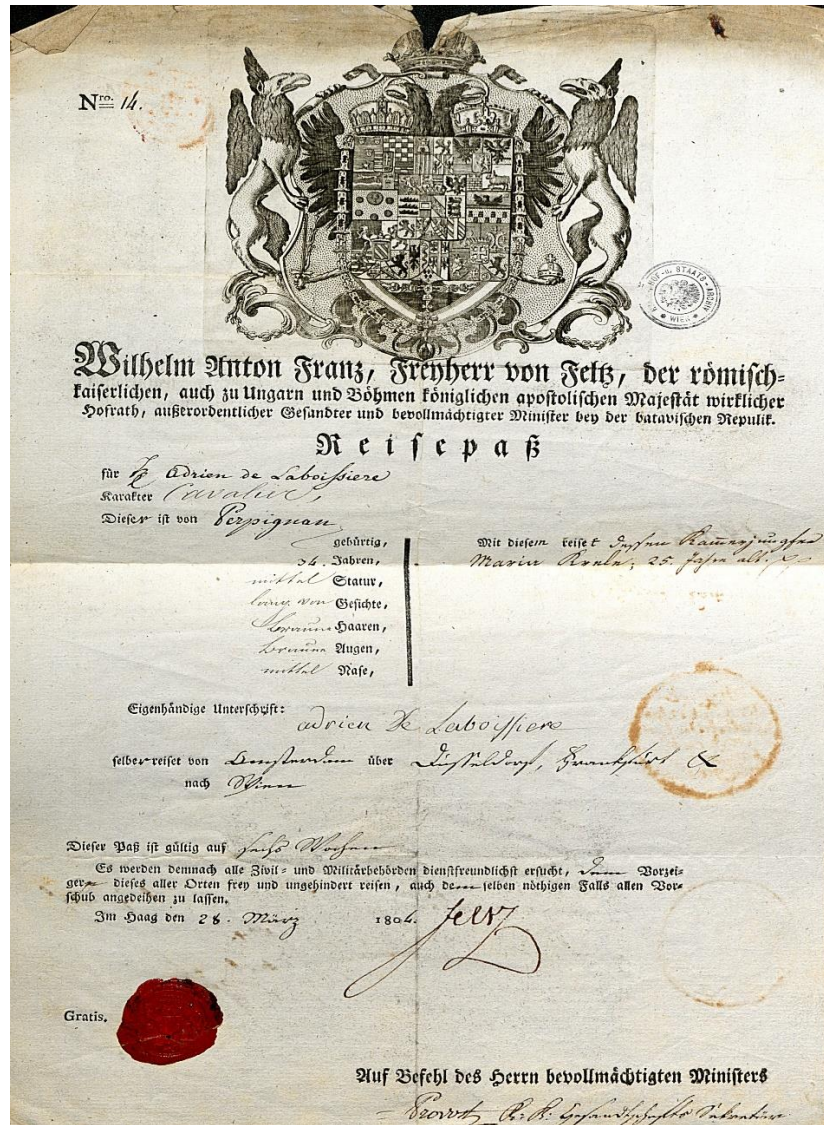 Nro. 14.
K. K. HAUS- HOF- U. STAATS-ARCHIV
* WIEN *
Wilhelm Anton Franz, Freyherr von Feltz, der römisch-
kaiserlichen, auch zu Ungarn und Böhmen königlichen apostolischen Majestät wirklicher
Hofrath, außerordentlicher Gesandter und bevollmächtigter Minister bey der batavischen Repulik.
Reisepaß
für Adrien de Laboissiere
Karakter Cavalier,
Dieser ist von Perpignan
gebürtig,
34. Jahren,
mittel Statur,
lang. von Gesichte,
Braune Haaren,
Braune Augen,
mittel Nase,
Mit diesem reiset dessen Kammerjungfer
Maria Krele, 25. Jahre alt.
Eigenhändige Unterschrift:
adrien De Laboissiere
selber reiset von Amsterdam über Düsseldorf, Frankfurt &
nach Wien
Dieser Paß ist gültig auf sechs Wochen
Es werden demnach alle Zivil- und Militärbehörden dienstfreundlichst ersucht, dem Vorzei-
gern dieses aller Orten frey und ungehindert reisen, auch demselben nöthigen Falls allen Vor-
schub angedeihen zu lassen.
Im Haag den 28. März 1804. Feltz
Gratis.
Auf Befehl des Herrn bevollmächtigten Ministers
Provost K: K: Gesandtschafts Sekretär